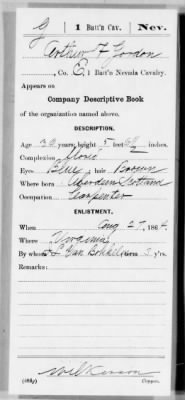 G | 1 Batt'n Cav. | Nev.
Arthur F Gordon
, Co. E, 1 Batt'n Nevada Cavalry.
Appears on
Company Descriptive Book
of the organization named above.
DESCRIPTION.
Age 30 years; height 5 feet inches.
Complexion
Eyes Blue; hair Brown
Where born Aberdeen Scotland
Occupation Carpenter
ENLISTMENT.
When Aug 27, 1864.
Where Virginia
By whom L Van Bokkelen; term 3 y'rs.
Remarks:
Wilkerson
(383g) Copyist.